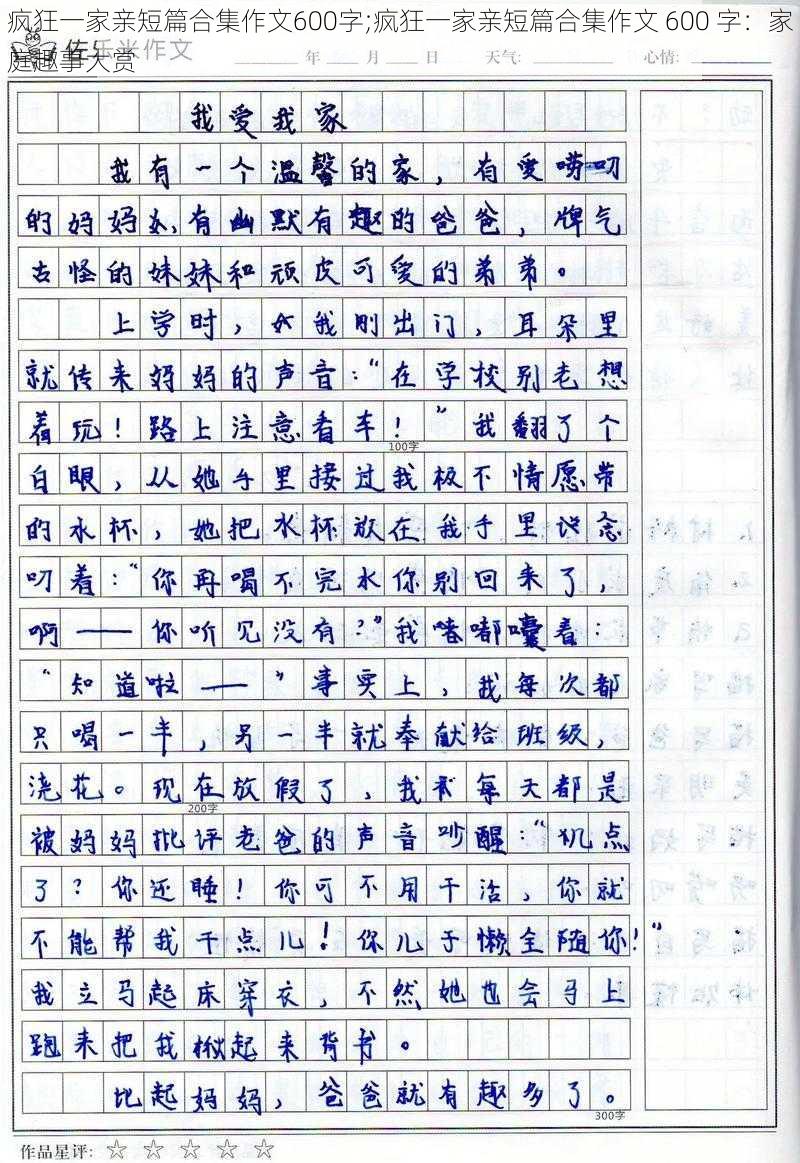 疯狂一家亲短篇合集作文600字;疯狂一家亲短篇合集作文 600 字：家
庭趣事大赏
佐乐米作文
年 月 日 天气: 心情:
我爱我家
我有一个温馨的家，有爱唠叨
的妈妈,有幽默有趣的爸爸，脾气
古怪的妹妹和顽皮可爱的弟弟。
上学时，我刚出门，耳朵里
就传来妈妈的声音：“在学校别老想
着玩！路上注意看车！”我翻了个
100字
白眼，从她手里接过我极不情愿带
的水杯，她把水杯放在我手里说念
叨着：“你再喝不完水你别回来了，
啊——你听见没有？”我嘟嘟囔着：
“知道啦——”事实上，我每次都
只喝一半，另一半就奉献给班级，
浇花。现在放假了，我每天都是
200字
被妈妈批评老爸的声音吵醒：“几点
了？你还睡！你可不用干活，你就
不能帮我干点儿！你儿子懒全随你！”
我立马起床穿衣，不然她也会马上
跑来把我揪起来背书。
比起妈妈，爸爸就有趣多了。
300字
作品星评: ☆ ☆ ☆ ☆ ☆